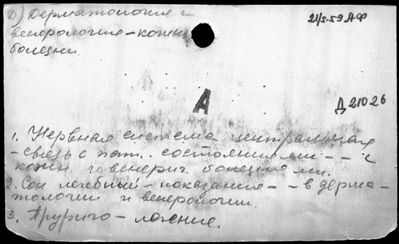 2) Дерматология и
венерология - кожные
болезни.
21/5-59 АФ
А
Д21026
1. Нервная система центральная
- связь с пат. состояниями - - с
кожн. и венерич. болезнями.
2. Сон лечебный - показания - - в дерма-
тологии и венерологии.
3. Пруриго - лечение.